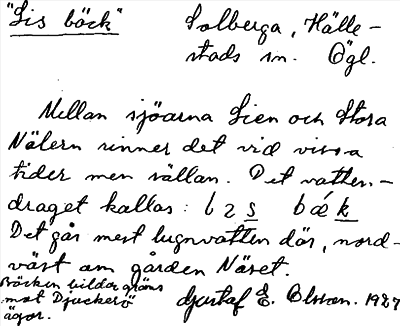 "Lis bäck"
Solberga, Hälle-
stads sn. Ögl.
Mellan sjöarna Lien och Stora
Nälern rinner det vid vissa
tider men sällan. Det vatten-
draget kallas:
Det går mest lugnvatten där, nord-
väst om gården Näset.
Bäcken bildar gräns
mot Djuckerö
ägor.
Gustaf E. Olsson. 1927